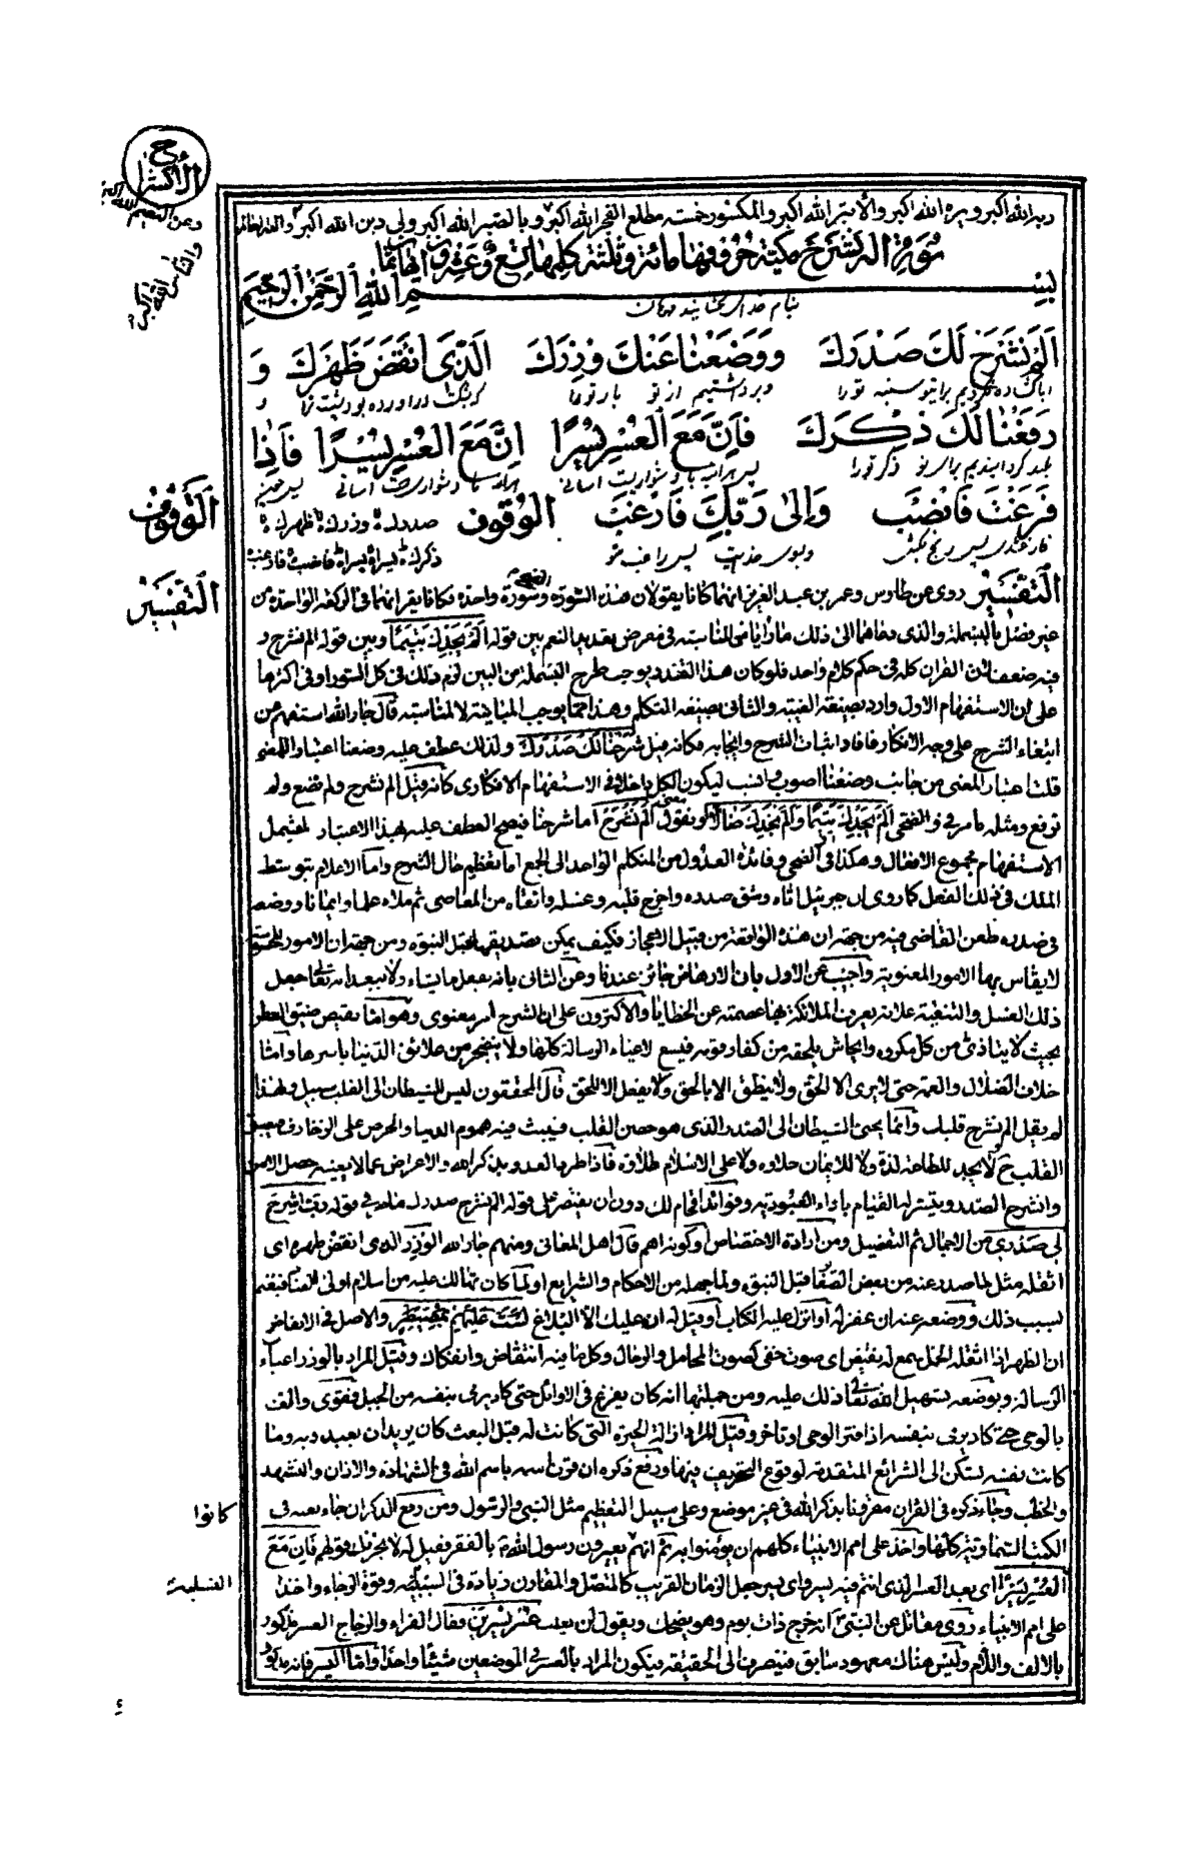 الانشراح
ربه الله اكبر ويره الله اكبر والابتر الله اكبر والمكسور خمسة مطلع الفجر الله اكبر وبالصبر الله اكبر ولي دين الله اكبر
سورة الم نشرح مكية حروفها مائة وثلثة كلمها تسع وعشرون ايها ثمان
بسم الله الرحمن الرحيم
بنام خدای بخشاينده مهربان
اَلَمْ نَشْرَحْ لَكَ صَدْرَكَ وَوَضَعْنَا عَنْكَ وِزْرَكَ الَّذِى اَنْقَضَ ظَهْرَكَ وَ
برای تو سينه تورا وبرداشتيم از تو بار تورا
رَفَعْنَا لَكَ ذِكْرَكَ فَاِنَّ مَعَ الْعُسْرِ يُسْرًا اِنَّ مَعَ الْعُسْرِ يُسْرًا فَاِذَا
بلند گردانيديم برای تو ذكر تورا
فَرَغْتَ فَانْصَبْ وَاِلٰى رَبِّكَ فَارْغَبْ الوقوف صدرك ه وزرك ه ظهرك ه
الوقوف
ذكرك ه يسرا ه يسرا ه فانصب ه فارغب ه
التفسير
التفسير روى عن طاوس وعمر بن عبد العزيز انهما كانا يقولان هذه السورة وسورة الضحى واحدة وكانا يقرانهما فى الركعة الواحدة من
غير فصل بالبسملة والذى دعاهما الى ذلك ما رأيا من المناسبة فى معرض تعديد النعم بين قوله الم يجدك يتيما وبين قوله الم نشرح و
فيه ضعف لان القران كله فى حكم كلام واحد فلو كان هذا القدر يوجب طرح البسملة من البين لزم ذلك فى كل السور او فى اكثرها
على ان الاستفهام الاول وارد بصيغة الغيبة والثانى بصيغة التكلم وهذا مما يوجب المباينة لا المناسبة قال جار الله استفهم عن
انتفاء الشرح على وجه الانكار فافاد اثبات الشرح وايجابه فكانه قيل شرحنا لك صدرك ولذلك عطف عليه وضعنا اعتبارا للمعنى
قلت اعتبار المعنى من جانب وضعنا اصوب وانسب ليكون الكل داخلا فى الاستفهام الانكارى كانه قيل الم نشرح ولم نضع ولم
نرفع ومثله مر فى والضحى الم يجدك يتيما والم يجدك ضالا او نقول معنى الم نشرح اما شرحنا فيصح العطف عليه بهذا الاعتبار
الاستفهام مجموع الافعال وهكذا فى الضحى وفائدة العدول من المتكلم الواحد الى الجمع اما تعظيم حال الشرح واما الاعلام بتوسط
الملك فى ذلك الفعل كما روى ان جبرئيل اتاه وشق صدره واخرج قلبه وغسله وانقاه من المعاصى ثم ملاه علما وايمانا ووضعه
فى صدره طعن القاضى فيه من جهة ان هذه الواقعة من قبيل الاعجاز فكيف يمكن تصديقها قبل النبوة ومن جهة ان الامور المحسوسة
لا يقاس بها الامور المعنوية واجيب عن الاول بان الارهاص جائز عندنا وعن الثانى بانه يفعل ما يشاء ولا يبعد انه تعالى جعل
ذلك الغسل والتنقية علامة يعرف الملائكة بها عصمته عن الخطايا والاكثرون على ان الشرح امر معنوى وهو اما نقيض ضيق العطن
بحيث لا يتاذى من كل مكروه وايحاش يلحقه من كفار قومه فيسع لاعباء الرسالة كلها ولا ينضجر من علائق الدنيا باسرها واما
خلاف الضلال والعمه حتى لا يرى الا الحق ولا ينطق الا بالحق ولا يفعل الا للحق قال المحققون ليس للشيطان الى القلب سبيل ولهذا
لم يقل الم نشرح قلبك وانما يجئ الشيطان الى الصدر الذى هو حصن القلب فيبث فيه هموم الدنيا والحرص على الزخارف فيضيق
القلب ح ولا يجد للطاعة لذة ولا للايمان حلاوة ولا على الاسلام طلاوة فاذا طرد العدو بذكر الله والاعراض عما لا يعنيه حصل الامن
وانشرح الصدر وتيسر له القيام باداء العبودية وفوائد اقحام لك دون ان يقتصر على قوله الم نشرح صدرك ما مر فى قوله رب اشرح
لى صدرى من الاجمال ثم التفصيل ومن ارادة الاختصاص او كونه اهم قال اهل المعانى ومنهم جار الله الوزر الذى انقض ظهره اى
اثقله مثل لما صدر عنه من بعض الصغائر قبل النبوة ولما جهله من الاحكام والشرايع او لما كان تهالك عليه من اسلام اولى العناد
بسبب ذلك ووضعه عنه ان غفر له او انزل عليه الكتاب او قيل له ان عليك الا البلاغ لست عليهم بمصيطر والاصل فى الانقاض
ان الظهر اذا اثقله الحمل يسمع له نقيض اى صوت خفى كصوت المحامل والرحال وكل ما فيه انتقاض وانفكاك وقيل المراد بالوزر اعباء
الرسالة وبوضعه تسهيل الله تعالى ذلك عليه ومن جملتها انه كان يفزع فى الاوائل حتى كاد يرمى بنفسه من الجبل فقوى والف
بالوحى حتى كاد يرمى بنفسه اذا فتر الوحى او تاخر وقيل المراد ازالة الحيرة التى كانت له قبل البعث كان يريد ان يعبد ربه وما
كانت نفسه تسكن الى الشرائع المتقدمة لوقوع التحريف فيها ورفع ذكره ان قرن اسمه باسم الله فى الشهادة والاذان والتشهد
والخطب وجاء ذكره فى القران مقرونا بذكر الله فى غير موضع وعلى سبيل التعظيم مثل النبى والرسول ومن رفع الذكر ان جاء نعته فى
كانوا
الكتب السماوية كلها واخذ على امم الانبياء كلهم ان يؤمنوا به ثم انهم يعيرون رسول الله ص بالفقر فقيل له لا يحزنك قولهم فان مع
العسر يسرا اى بعد العسر الذى انتم فيه يسر واى يسر جعل الزمان القريب كالمتصل والمقارن زيادة فى التسلية وقوة الرجاء واخذا
التسلية
على امم الانبياء روى مقاتل عن النبى ص انه خرج ذات يوم وهو يضحك ويقول لن يغلب عسر يسرين وقال الفراء والزجاج العسر مذكور
بالالف واللام وليس هناك معهود سابق فينصرف الى الحقيقة فيكون المراد بالعسر فى الموضعين شيئا واحدا واما اليسر فانه مذكور